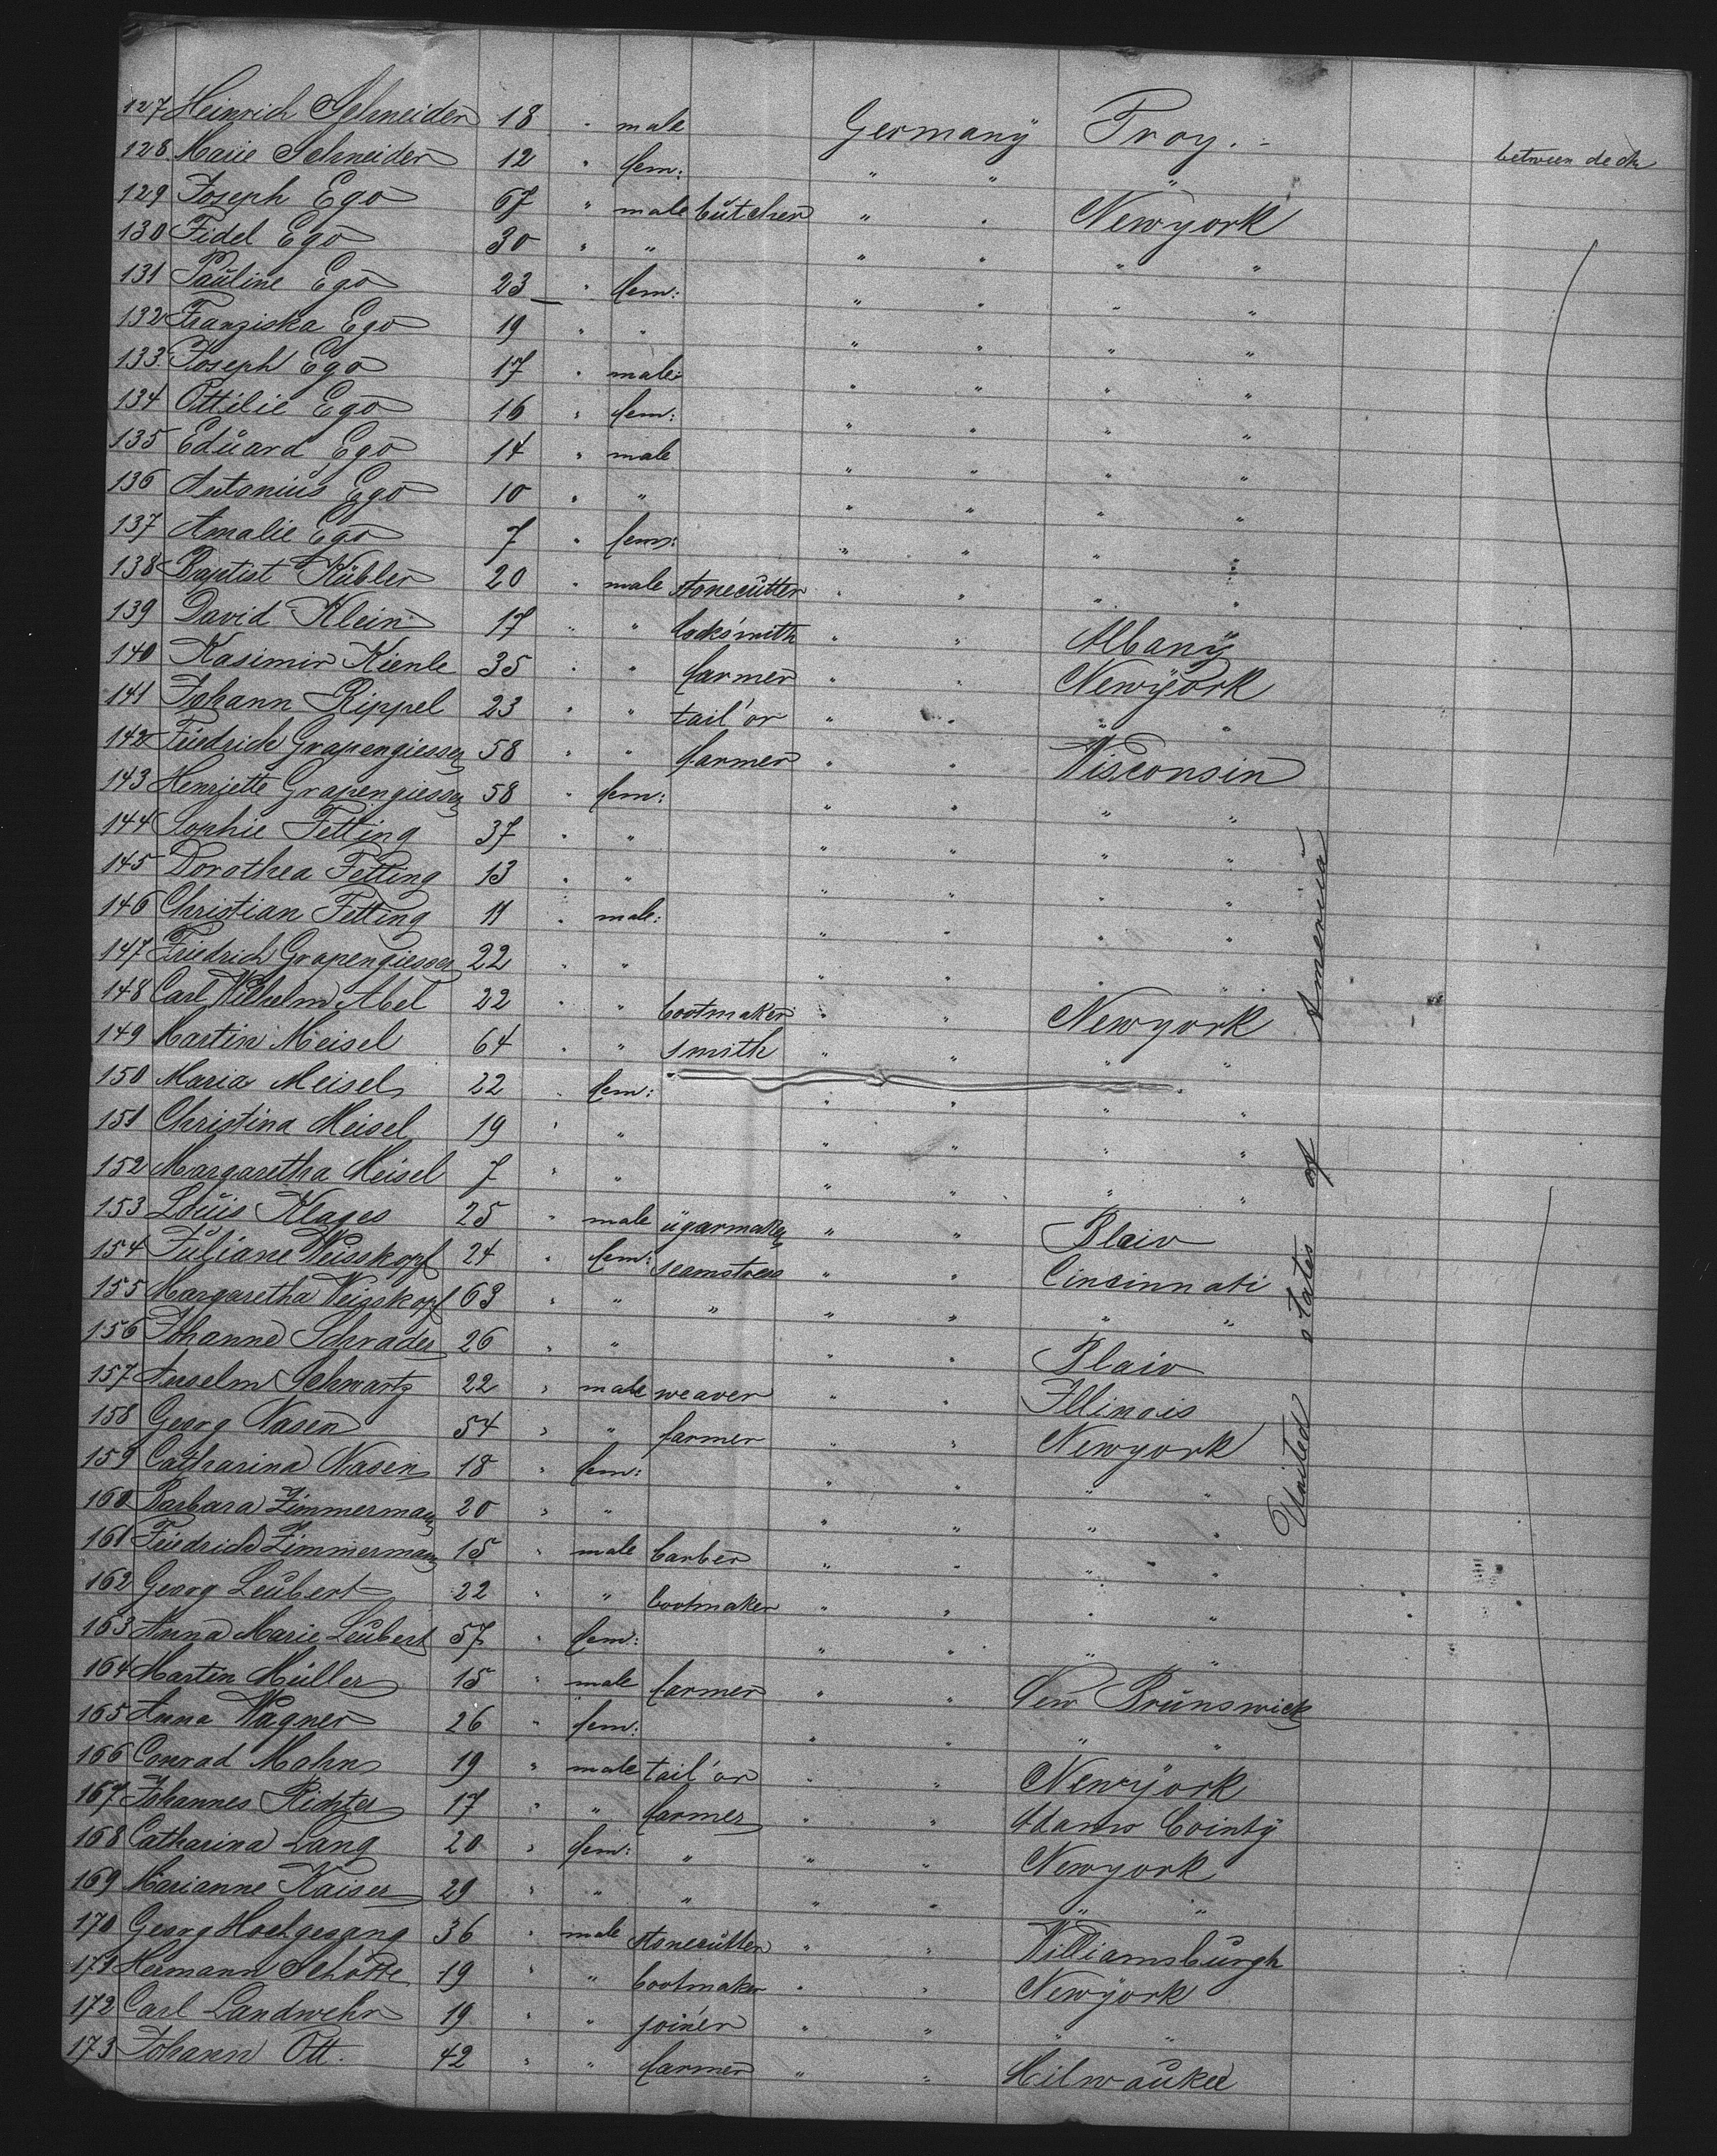 127 Heinrich Schneider 18 " male Germany Troy. between deck
128 Marie Schneider 12 " fem: " " "
129 Joseph Ego 67 " male butcher " " Newyork
130 Fidel Ego 30 " " " " " "
131 Pauline Ego 23 " fem: " " " "
132 Franziska Ego 19 " " " " " "
133 Joseph Ego 17 " male " " " "
134 Ottilie Ego 16 " fem: " " " "
135 Eduard Ego 14 " male " " " "
136 Antonius Ego 10 " " " " " "
137 Amalie Ego 7 " fem: " " " "
138 Baptist Kübler 20 " male stonecutter " " " "
139 David Klein 17 " " locksmith " " Albany
140 Kasimir Kienle 35 " " farmer " " Newyork
141 Johann Rippel 23 " " tailor " " " "
142 Friedrich Grapengiesser 58 " " farmer " " Wisconsin
143 Henriette Grapengiesser 58 " fem: " " " "
144 Sophie Fetting 37 " " " " " "
145 Dorothea Fetting 13 " " " " " "
146 Christian Fetting 11 " male: " " " "
147 Friedrich Grapengiesser 22 " " " " " "
148 Carl Wilhelm Abel 22 " " bootmaker " " Newyork
149 Martin Meisel 64 " " smith " " " "
150 Maria Meisel 22 " fem: " " " "
151 Christina Meisel 19 " " " " " "
152 Margaretha Meisel 7 " " " " " "
153 Louis Klages 25 " male cigarmaker " " Blair
154 Juliane Weisskopf 24 " fem: seamstress " " Cincinnati
155 Margaretha Weisskopf 63 " " " " " " "
156 Johanne Schrader 26 " " " " Blair
157 Anselm Schwartz 22 " male weaver " " Illinois
158 Georg Wasen 54 " " farmer " " Newyork
159 Catharina Wasen 18 " fem: " " " "
160 Barbara Zimmermann 20 " " " " " "
161 Friedrich Zimmermann 15 " male barber " " " "
162 Georg Leubert 22 " " bootmaker " " " "
163 Anna Marie Leubert 57 " fem: " " " "
164 Martin Müller 15 " male farmer " " New Brunswick
165 Anna Wagner 26 " fem: " " " "
166 Conrad Mohn 19 " male tailor " " Newyork
167 Johannes Richter 17 " " farmer " " Adams County
168 Catharina Lang 20 " fem: " " " Newyork
169 Marianne Kaiser 29 " " " " " " "
170 Georg Hochgesang 36 " male stonecutter " " Williamsburgh
171 Hermann Schotte 19 " " bootmaker " " Newyork
172 Carl Landwehr 19 " " joiner " " " "
173 Johann Ott. 42 " " farmer " " Milwaukee
United states of America